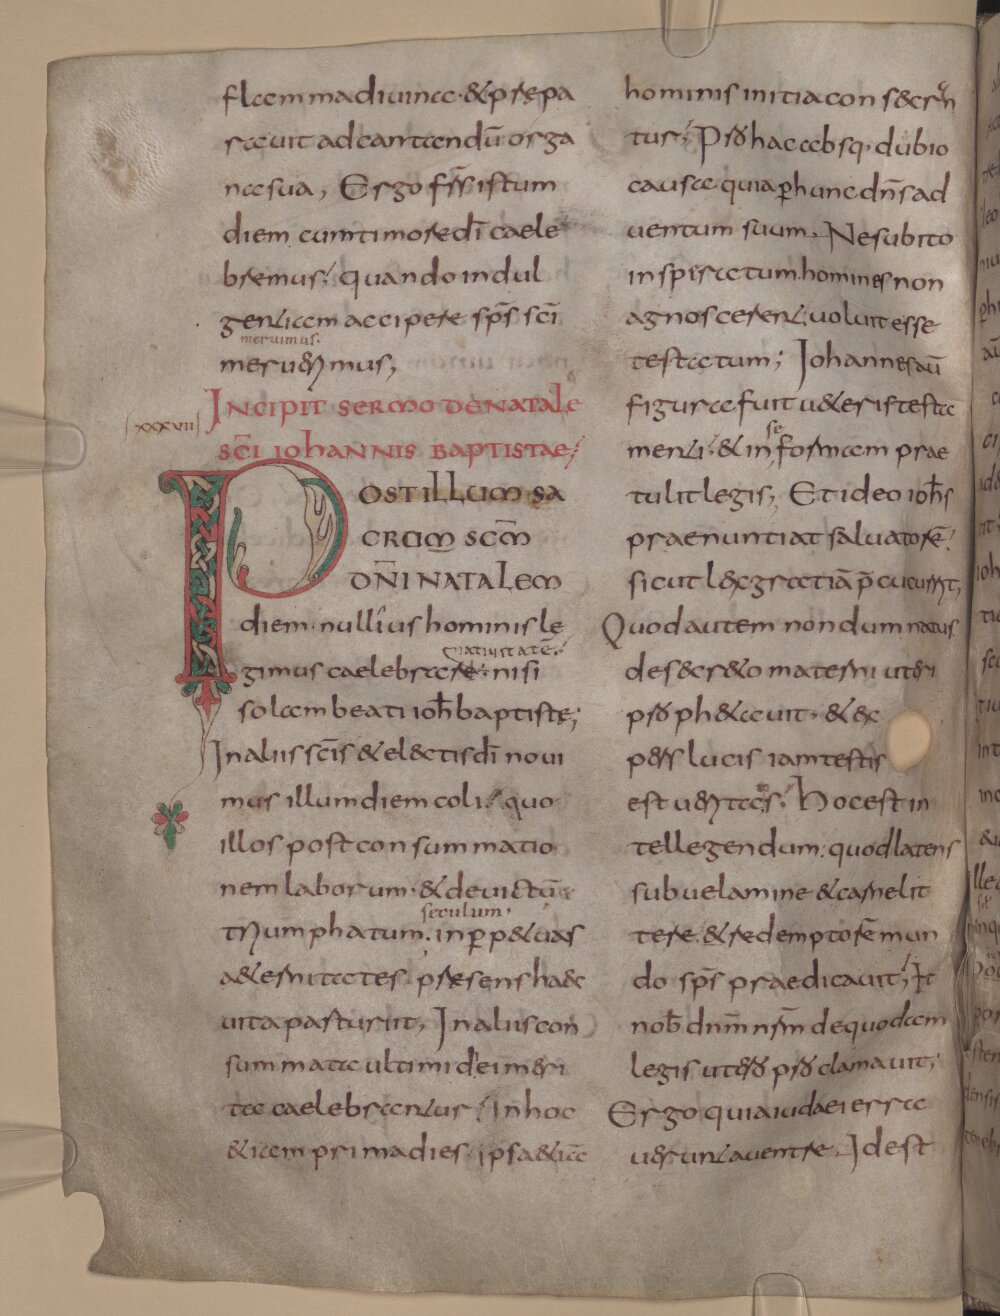 flammadiuina· &prepa
rauit adcantandū orga
na sua, Ergo frs̄ istum
diem cumtimore dī caele
bremus; quando indul
gentiam accipere sp̄s sc̄i
meruimus·
merueri mus;
INCIPIT SERMO DENATALE
xxxvii
SC̄I IOHANNIS BAPTISTAE;
POSTILLUM SA
CRUM SCM̄
DN̄I NATALEM
diem· nullius hominis le
natiuitatē
gimus caelebrare· nisi
solam beati ioh̄ baptiste;
In aliis sc̄is & el&ctis dī noui
mus illum diem coli; quo
illos post consummatio
nem laborum· & deuictū
seculum·
triumphatum· in pp&uas
a&ernitates· presens haec
uita parturiit; In aliis con
summata ultimi diei meri
ta caelebrantur; In hoc
&iam prima dies· ipsa&iā
hominis initia consecran
tur; Pro hac absq· dubio
causa quia p hunc dn̄s ad
uentum suum· Ne subito
insperatum homines non
agnoscerent; uoluit esse
testatum; Iohannes aū
figura fuit u&eris testa
se
menti· & in formam prae
tulit legis; Et ideo ioh̄s
praenuntiat saluatorē;
sicut lex gratiā p̄cucurrit;
Quod autem nondum natus
de secr&o materni uteri
proph&auit· & ex
pers lucis iam testis
est ueritatis; Hoc est in
tellegendum· quod latens
sub uelamine & carne lit
tere· & redemptorē mun
do sp̄s praedicauit; Et
nob̄ dn̄m nr̄m de quodam
legis utero proclamauit;
Ergo quia iudaei erra
uerunt auentre· Idest